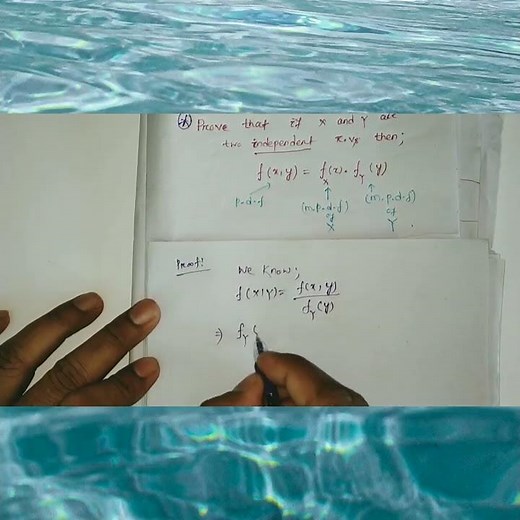 Prove that if X and Y are
two independent r.vs then;
f(x,y) = f_X(x). f_Y(y)
p.d.f (m.p.d.f) (m.p.d.f)
of of
X Y.
Proof!
We know;
f(x|y) = f(x,y) / f_Y(y)
⇒ f_Y(